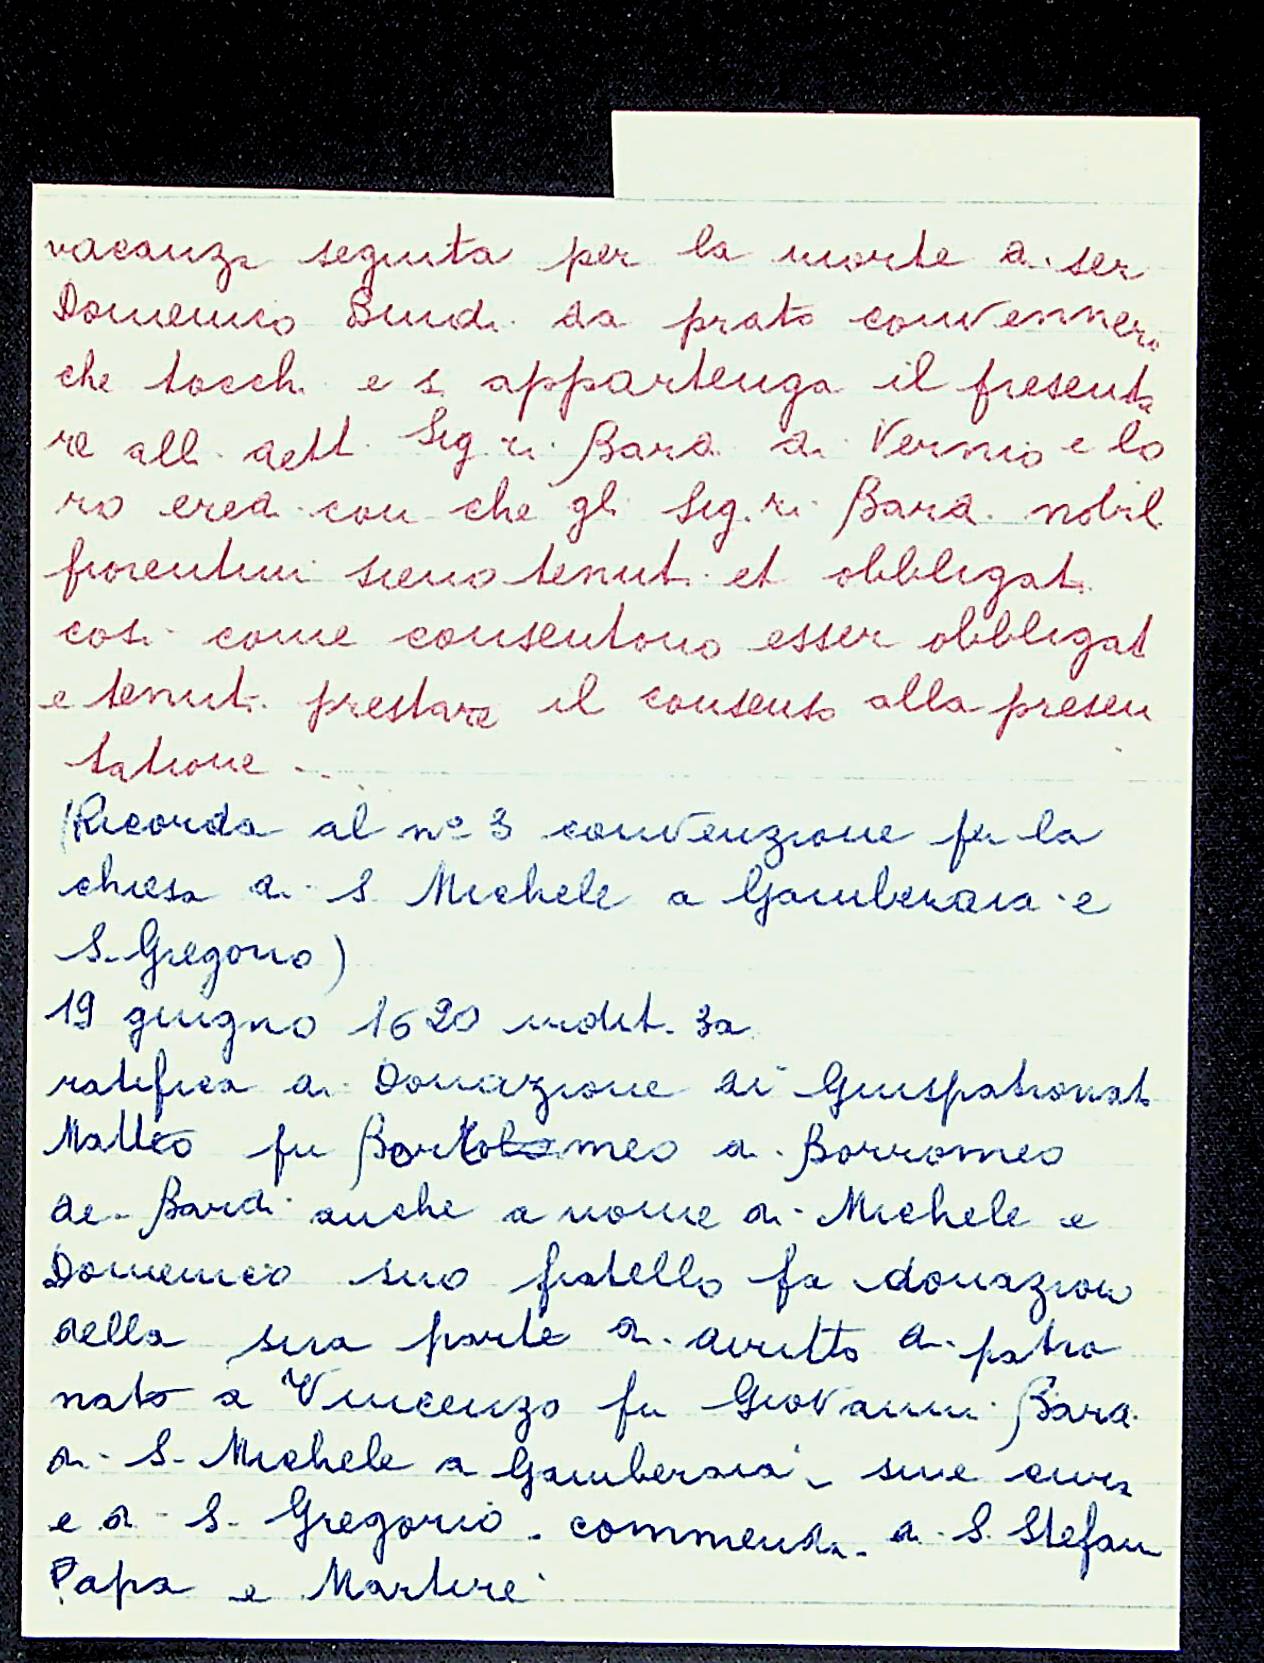 vacanza seguita per la morte di ser
Domenico Bindi da prato convennero
che tocchi e si appartenga il presenta
re alli detti Sig.ri Bardi di Vernio e lo
ro eredi con che gli Sig.ri Bardi nobili
fiorentini sieno tenuti et obbligati
così come consentono esser obbligati
e tenuti prestare il consenso alla presen
tatione ..
(Ricorda al nº 3 convenzione fra la
chiesa di S. Michele a Gamberaia e
S. Gregorio)
19 giugno 1620 indit. 3a
ratifica di Donazione di Giuspatronato
Matteo fu Bartolomeo di Borromeo
de Bardi anche a nome di Michele e
Domenico suo fratello fa donazione
della sua parte di diritto di patro
nato a Vincenzo fu Giovanni Bardi
di S. Michele a Gamberaia, sine cura
e di S. Gregorio. commenda di S. Stefano
Papa e Martire